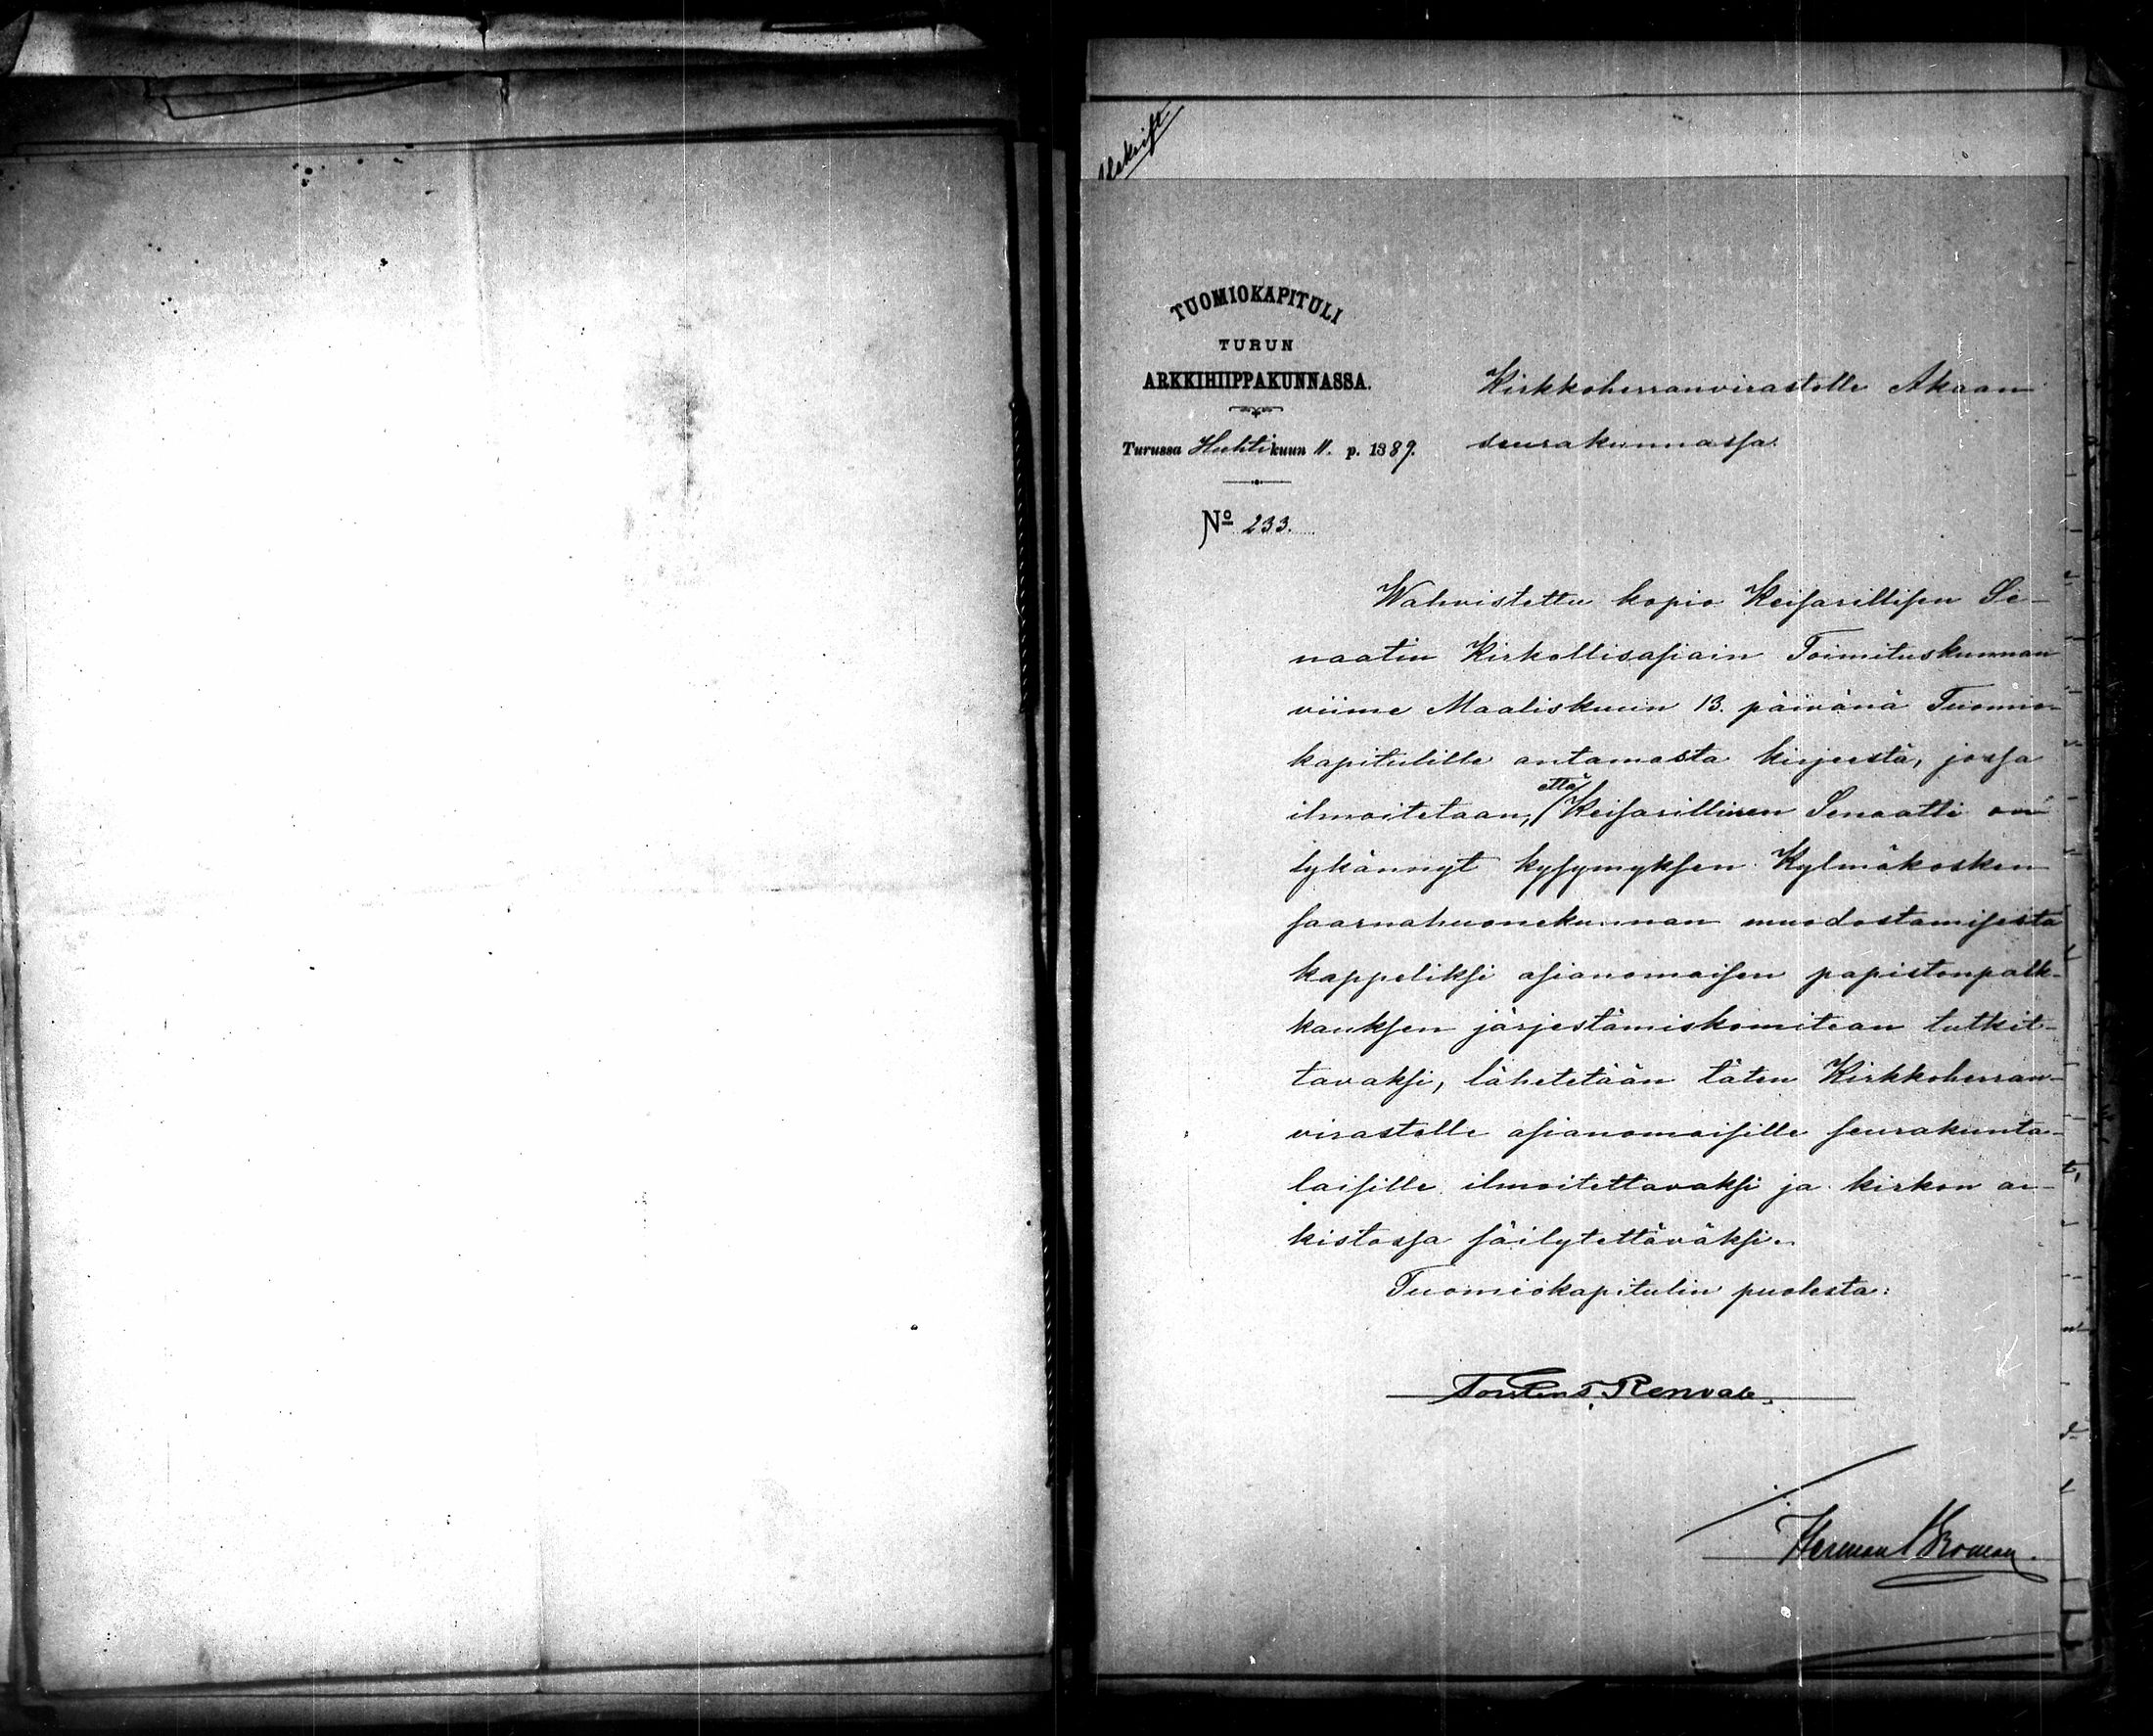 Utskrift
TUOMIOKAPITULI
TURUN
ARKKIHIIPPAKUNNASSA.
Turussa Huhtikuun 11. p. 1889.
No 233.
Kirkkoherranvirastolle Akaan
seurakunnassa.
Wahvistettu kopio Keisarillisen Se-
naatin Kirkollisasiain Toimituskunnan
viime Maaliskuun 13. päivänä Tuomio-
kapitulille antamasta kirjeestä, jossa
ilmoitetaan, että Keisarillinen Senaatti on
lykännyt kysymyksen Kylmäkosken
saarnahuonekunnan muodostamisesta
kappeliksi asianomaisen papistonpalk-
kauksen järjestämiskomitean tutkit-
tavaksi, lähetetään täten Kirkkoherran-
virastolle asianomaisille seurakunta-
laisille ilmoitettavaksi ja kirkon ar-
kistossa säilytettäväksi.
Tuomiokapitulin puolesta:
Torsten T. Renvall.
Herman Roman.